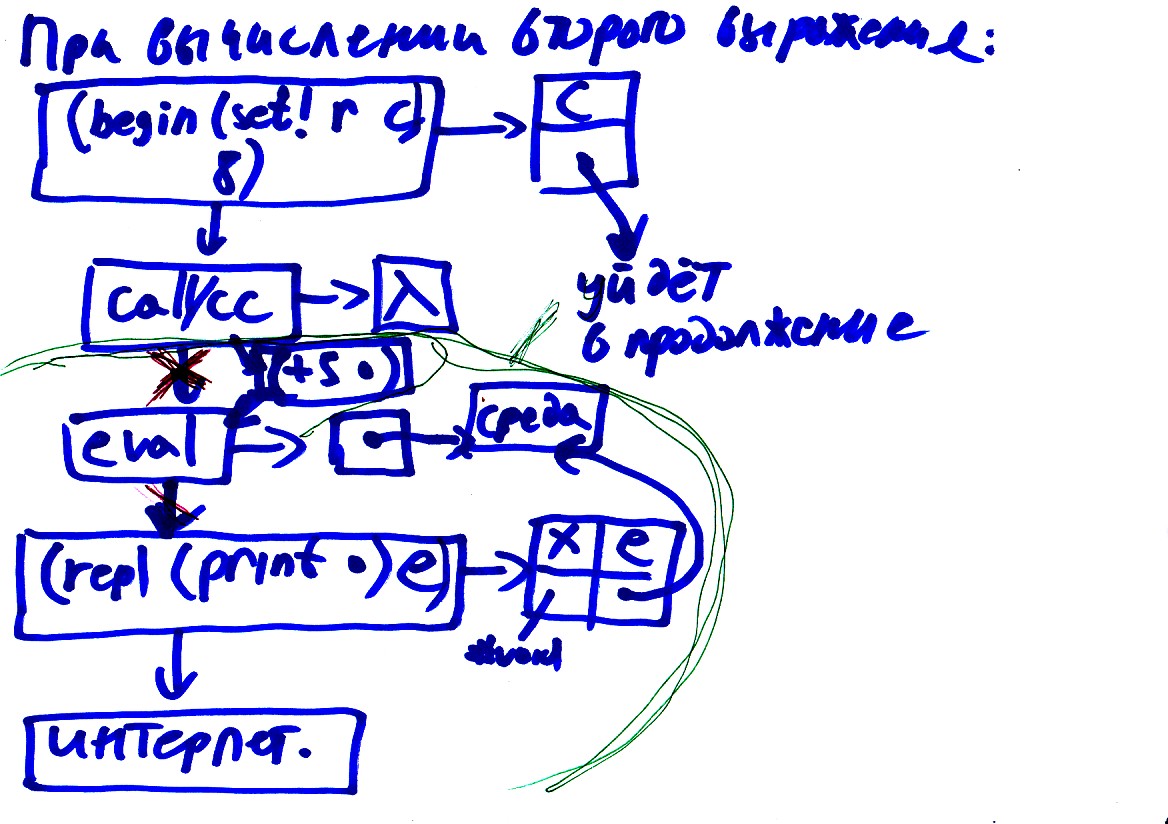 При вычислении второго выражение:
(begin (set! r c)
8)
c
уйдёт
в продолжение
call/cc
λ
(+5 •)
eval
среда
(repl (print •) e)
x e
#void
интерпет.